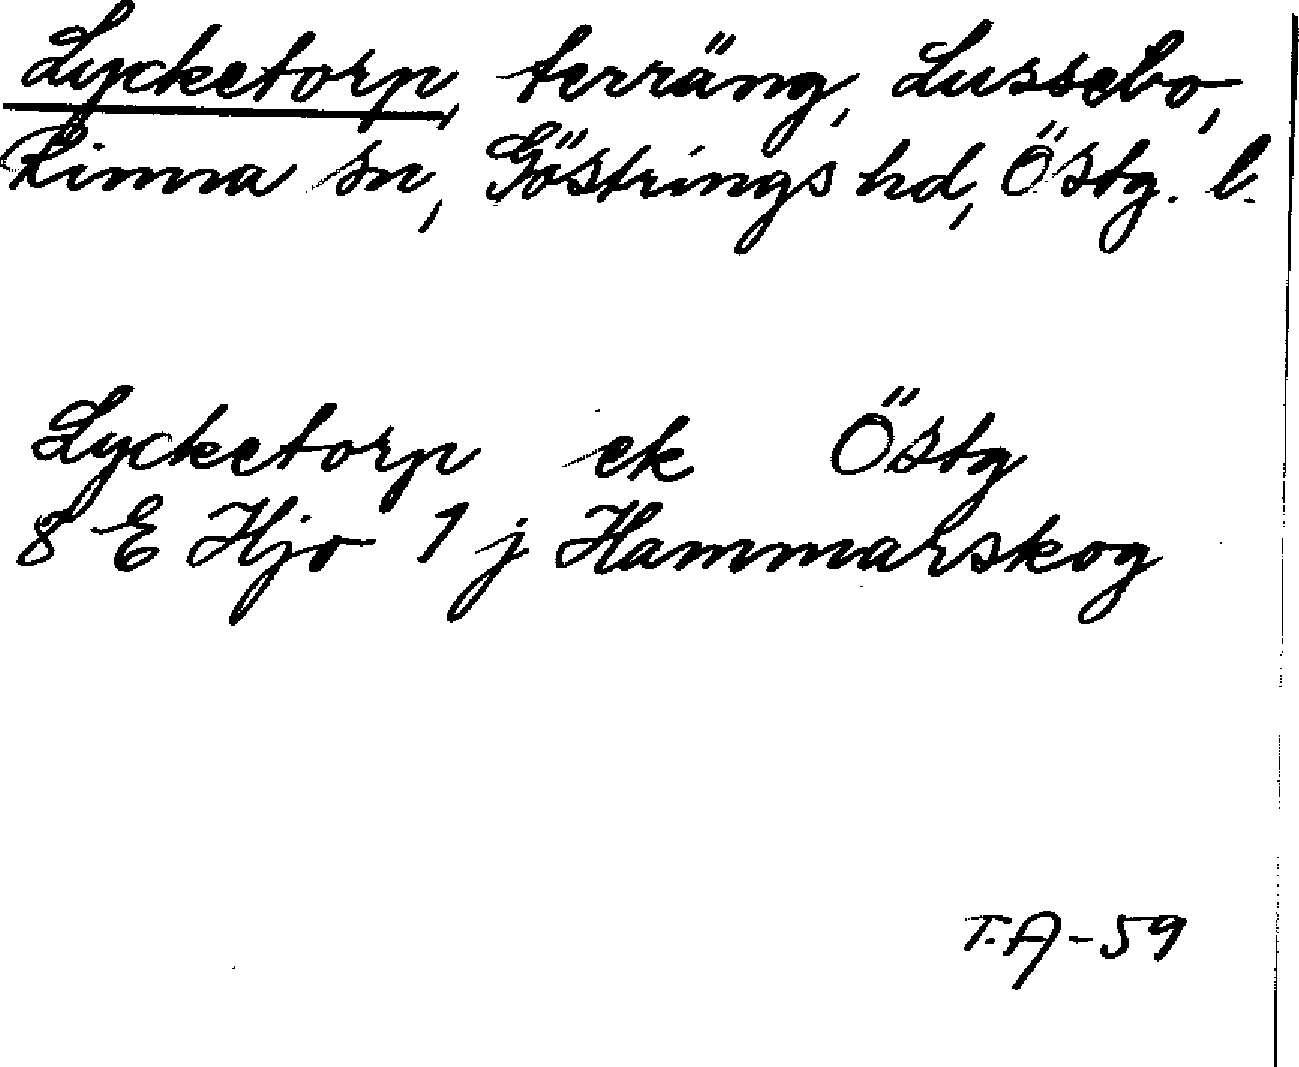 Lycketorp, terräng, Lussebo,
Rinna sn, Göstrings hd, Östg. l.
Lycketorp ek Östg
8 E Hjo 1 j Hammarskog
T.A-59